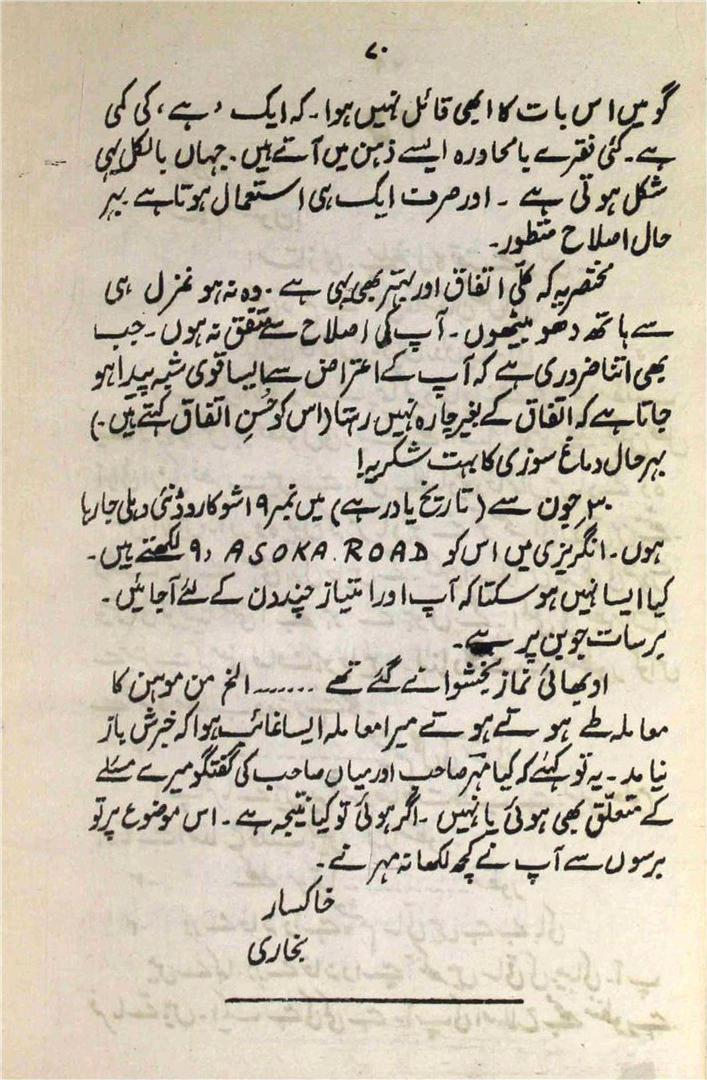 ۷۰
گو میں اس بات کا ابھی قائل نہیں ہوا۔ کہ ایک ، ہے ، کی کمی
ہے۔ کئی فقرے یا محاورہ ایسے ذہن میں آتے ہیں۔ جہاں بالکل یہی
شکل ہوتی ہے ۔ اور صرف ایک ہی استعمال ہوتا ہے بہر
حال اصلاح منظور۔
مختصر یہ کہ کلّی اتفاق اور بہتر بھی یہی ہے ۔ وہ نہ ہو غزل ہی
سے ہاتھ دھو بیٹھوں ۔ آپ کی اصلاح سے متفق نہ ہوں ۔ جب
بھی اتنا ضروری ہے کہ آپ کے اعتراض سے ایسا قوی شبہ پیدا ہو
جاتا ہے کہ اتفاق کے بغیر چارہ نہیں رہتا (اس کو حُسنِ اتفاق کہتے ہیں ۔)
بہر حال دماغ سوزی کا بہت شکریہ!
۳۰ جون سے (تاریخ یاد رہے) میں نمبر ۹ اشوکا روڈ نئی دہلی جا رہا
ہوں۔ انگریزی میں اس کو 9، ASOKA ROAD لکھتے ہیں۔
کیا ایسا نہیں ہو سکتا کہ آپ اور امتیاز چند دن کے لئے آجائیں ۔
برسات جوبن پر ہے۔
او بھائی نماز بخشوانے گئے تھے ....... الخ من موہن کا
معاملہ طے ہوتے ہوتے میرا معاملہ ایسا غائب ہوا کہ خبرش باز
نیامد ۔ یہ تو کہئے کہ کیا مہر صاحب اور میاں صاحب کی گفتگو میرے مسئلے
کے متعلّق بھی ہوئی یا نہیں ۔ اگر ہوئی تو کیا نتیجہ ہے ۔ اس موضوع پر تو
برسوں سے آپ نے کچھ لکھا نہ مہر نے ۔
خاکسار
بخاری